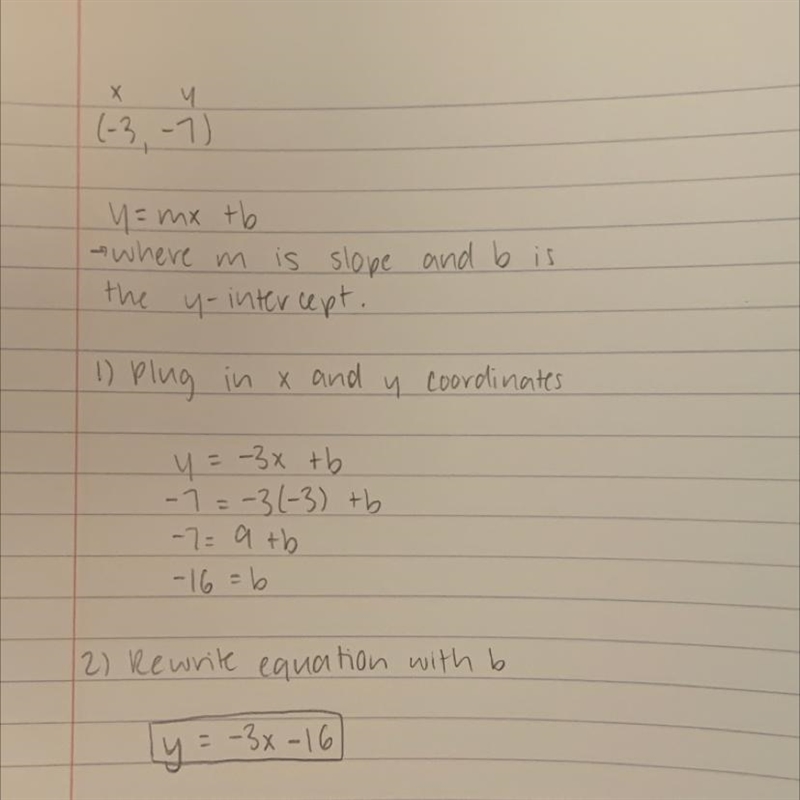 x y
(-3, -7)
y = mx + b
→ where m is slope and b is
the y-intercept.
1) Plug in x and y coordinates
y = -3x + b
-7 = -3(-3) + b
-7 = 9 + b
-16 = b
2) Rewrite equation with b
y = -3x - 16